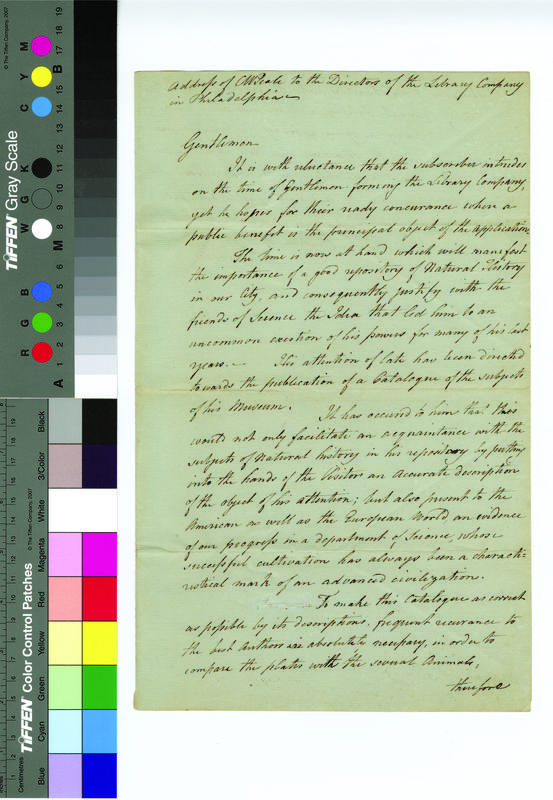 Address of CWPeale to the Directors of the Library Company
in Philadelphia
Gentlemen
It is with reluctance that the subscriber intrudes
on the time of Gentlemen forming the Library Company,
yet he hopes for their ready concurance when a
public benefit is the principal object of the application.
The time is now at hand which will manifest
the importance of a good repository of Natural History
in our City, and consequently justify with the
friends of Science the Idea that led him to an
uncommon exertion of his powers for many of his last
years. His attention of late has been directed
towards the publication of a Catalogue of the subjects
of his Museum. It has occured to him that this
would not only facilitate an acquaintance with the
subjects of Natural history in his repository by putting
into the hands of the Visitor an Accurate description
of the object of his attention; but also present to the
American as well as the European World an evidence
of our progress in a department of Science, whose
successful cultivation has always been a characte-
ristical mark of an advanced civilization.
To make this Catalogue as correct
as possible by its descriptions, frequent recurance to
the best Authors is absolutely necessary, in order to
compare the plates with the several Animals,
therefore
TIFFEN Gray Scale
© The Tiffen Company, 2007
R G B W G K C Y M
A 1 2 3 4 5 6 M 8 9 10 11 12 13 14 15 B 17 18 19
TIFFEN Color Control Patches
© The Tiffen Company, 2007
Centimetres
Inches
Blue
Cyan
Green
Yellow
Red
Magenta
White
3/Color
Black